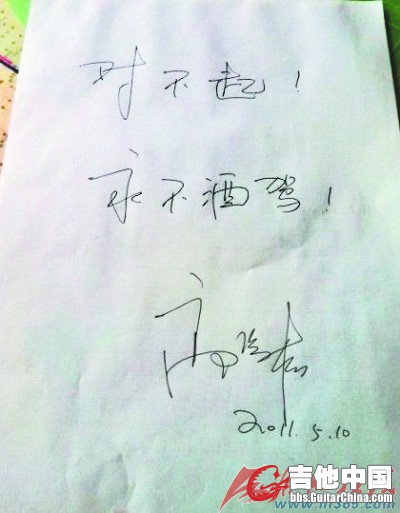 对不起！
永不酒驾！
高晓松
2011.5.10
吉他中国
bbs.GuitarChina.com